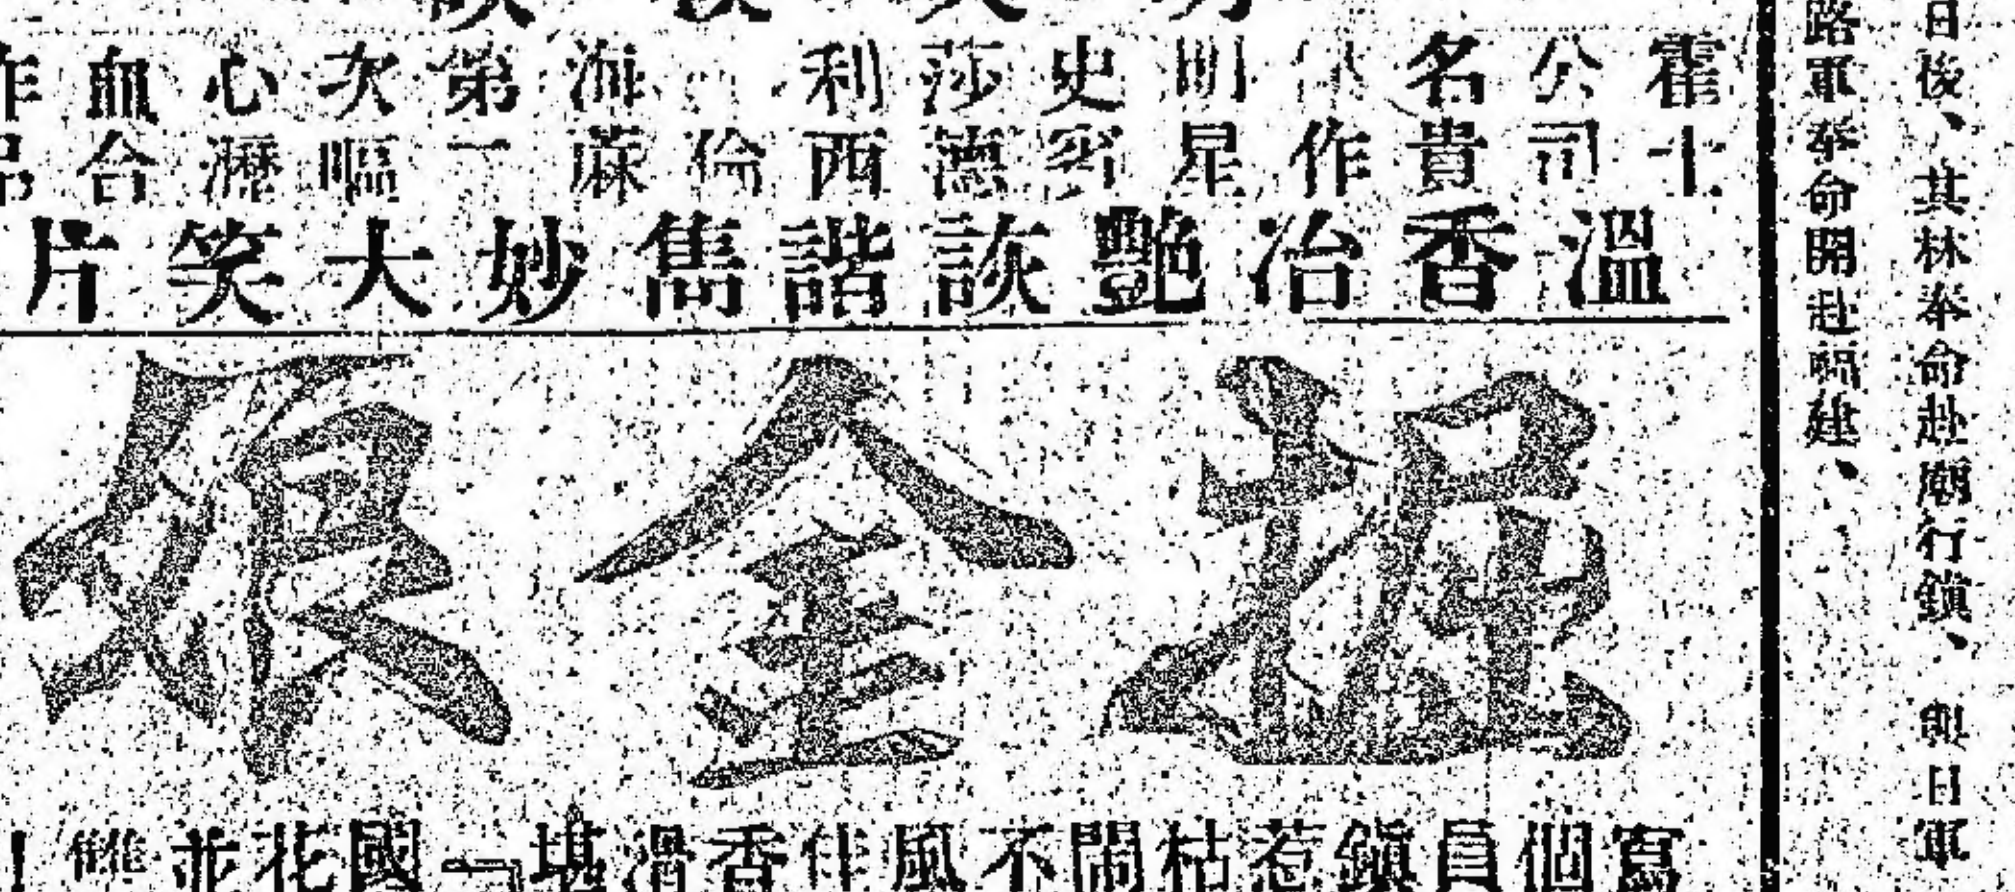 日後、其林奉命赴廟行鎮、與日軍
路軍奉命開赴福建、
霍士
公司
名貴
作
明星
史
莎德
利西
倫
海蔴
第一
次嘔
心瀝
血合
作品
溫香冶艷詼諧雋妙大笑片
掘金娘
寫個員鎮惹枯鬧不風佳香滑堪一國花並雙！